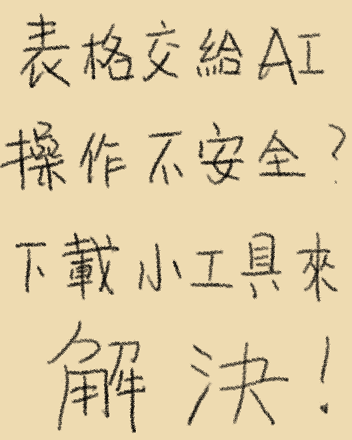 表格交給AI
操作不安全?
下載小工具來
解決!